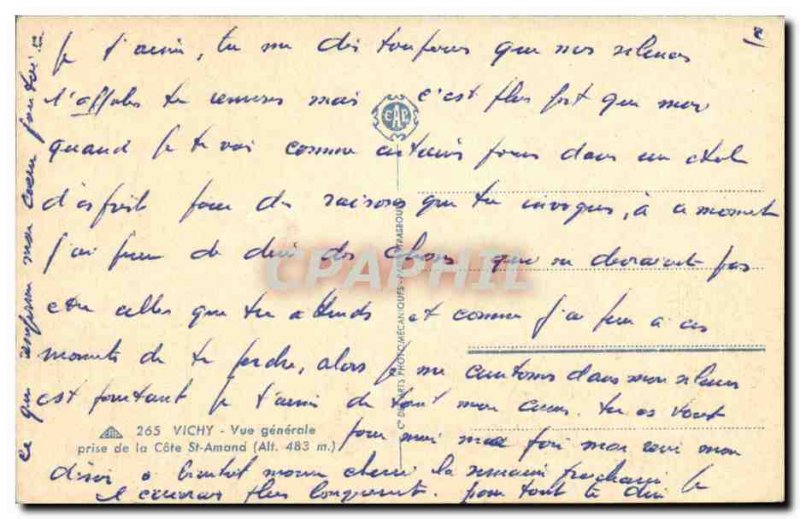 Je t'aime, tu me dis toujours que mes silences
t'affoles tu m'excuses mais c'est plus fort que moi
quand je te vois comme certains jours dans un état
d'esprit pour des raisons que tu invoques, à ce moment
j'ai peur de dire des choses qui ne devraient pas
être celles que tu attends et comme j'ai peur à ces
moments de te perdre, alors je me cantonne dans mon silence
est pourtant je t'aime de tout mon cœur. tu es tout
pour moi ma foi mon mon
désir à bientôt mon chéri la semaine prochaine je
t'écrirai plus longuement. pour tout te dire
ce que renferme mon cœur pour toi
265 VICHY - Vue générale
prise de la Côte St-Amand (Alt. 483 m.)
CAP
Cie DES ARTS PHOTOMÉCANIQUES
CPAPHIL